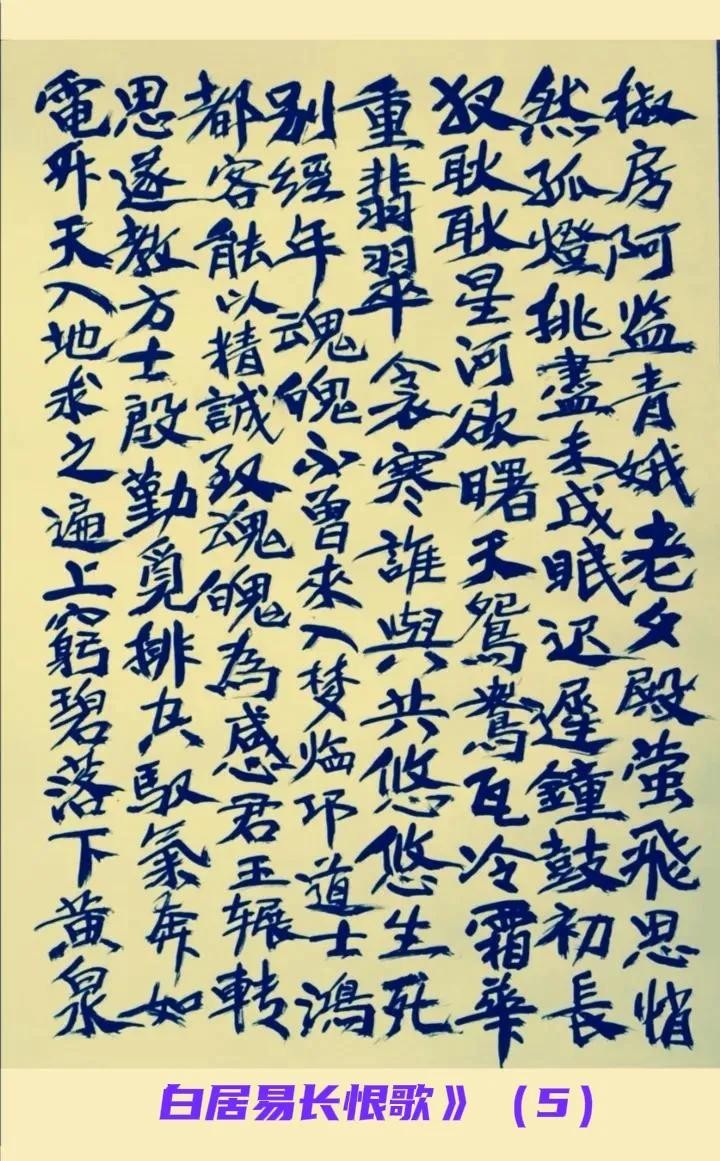 椒房阿监青娥老夕殿萤飛思悄
然孤燈挑盡未成眠迟遲鐘鼓初長
夜耿耿星河欲曙天鴛鴦瓦冷霜華
重翡翠衾寒誰與共悠悠生死
别經年魂魄不曾來入梦临邛道士鴻
都客能以精誠致魂魄為感君王辗轉
思遂教方士殷勤覓排空馭氣奔如
電升天入地求之遍上窮碧落下黄泉
白居易长恨歌》（5）